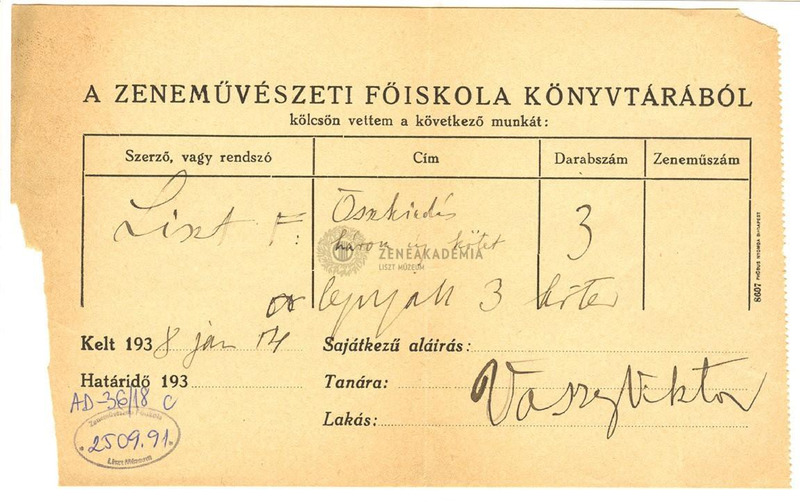 A ZENEMŰVÉSZETI FŐISKOLA KÖNYVTÁRÁBÓL
kölcsön vettem a következő munkát:
Szerző, vagy rendszó Cím Darabszám Zeneműszám
Liszt F. Öszkiadás 3
három új kötet
ZENEAKADÉMIA
LISZT MÚZEUM
3 kötet
Kelt 1938 jan 14 Sajátkezű aláírás:
Határidő 193 Tanára:
Vaszy Viktor
Lakás:
AD-36/18 C
2509.91.
Liszt Múzeum
8607 PHŐBUS NYOMDA BUDAPEST